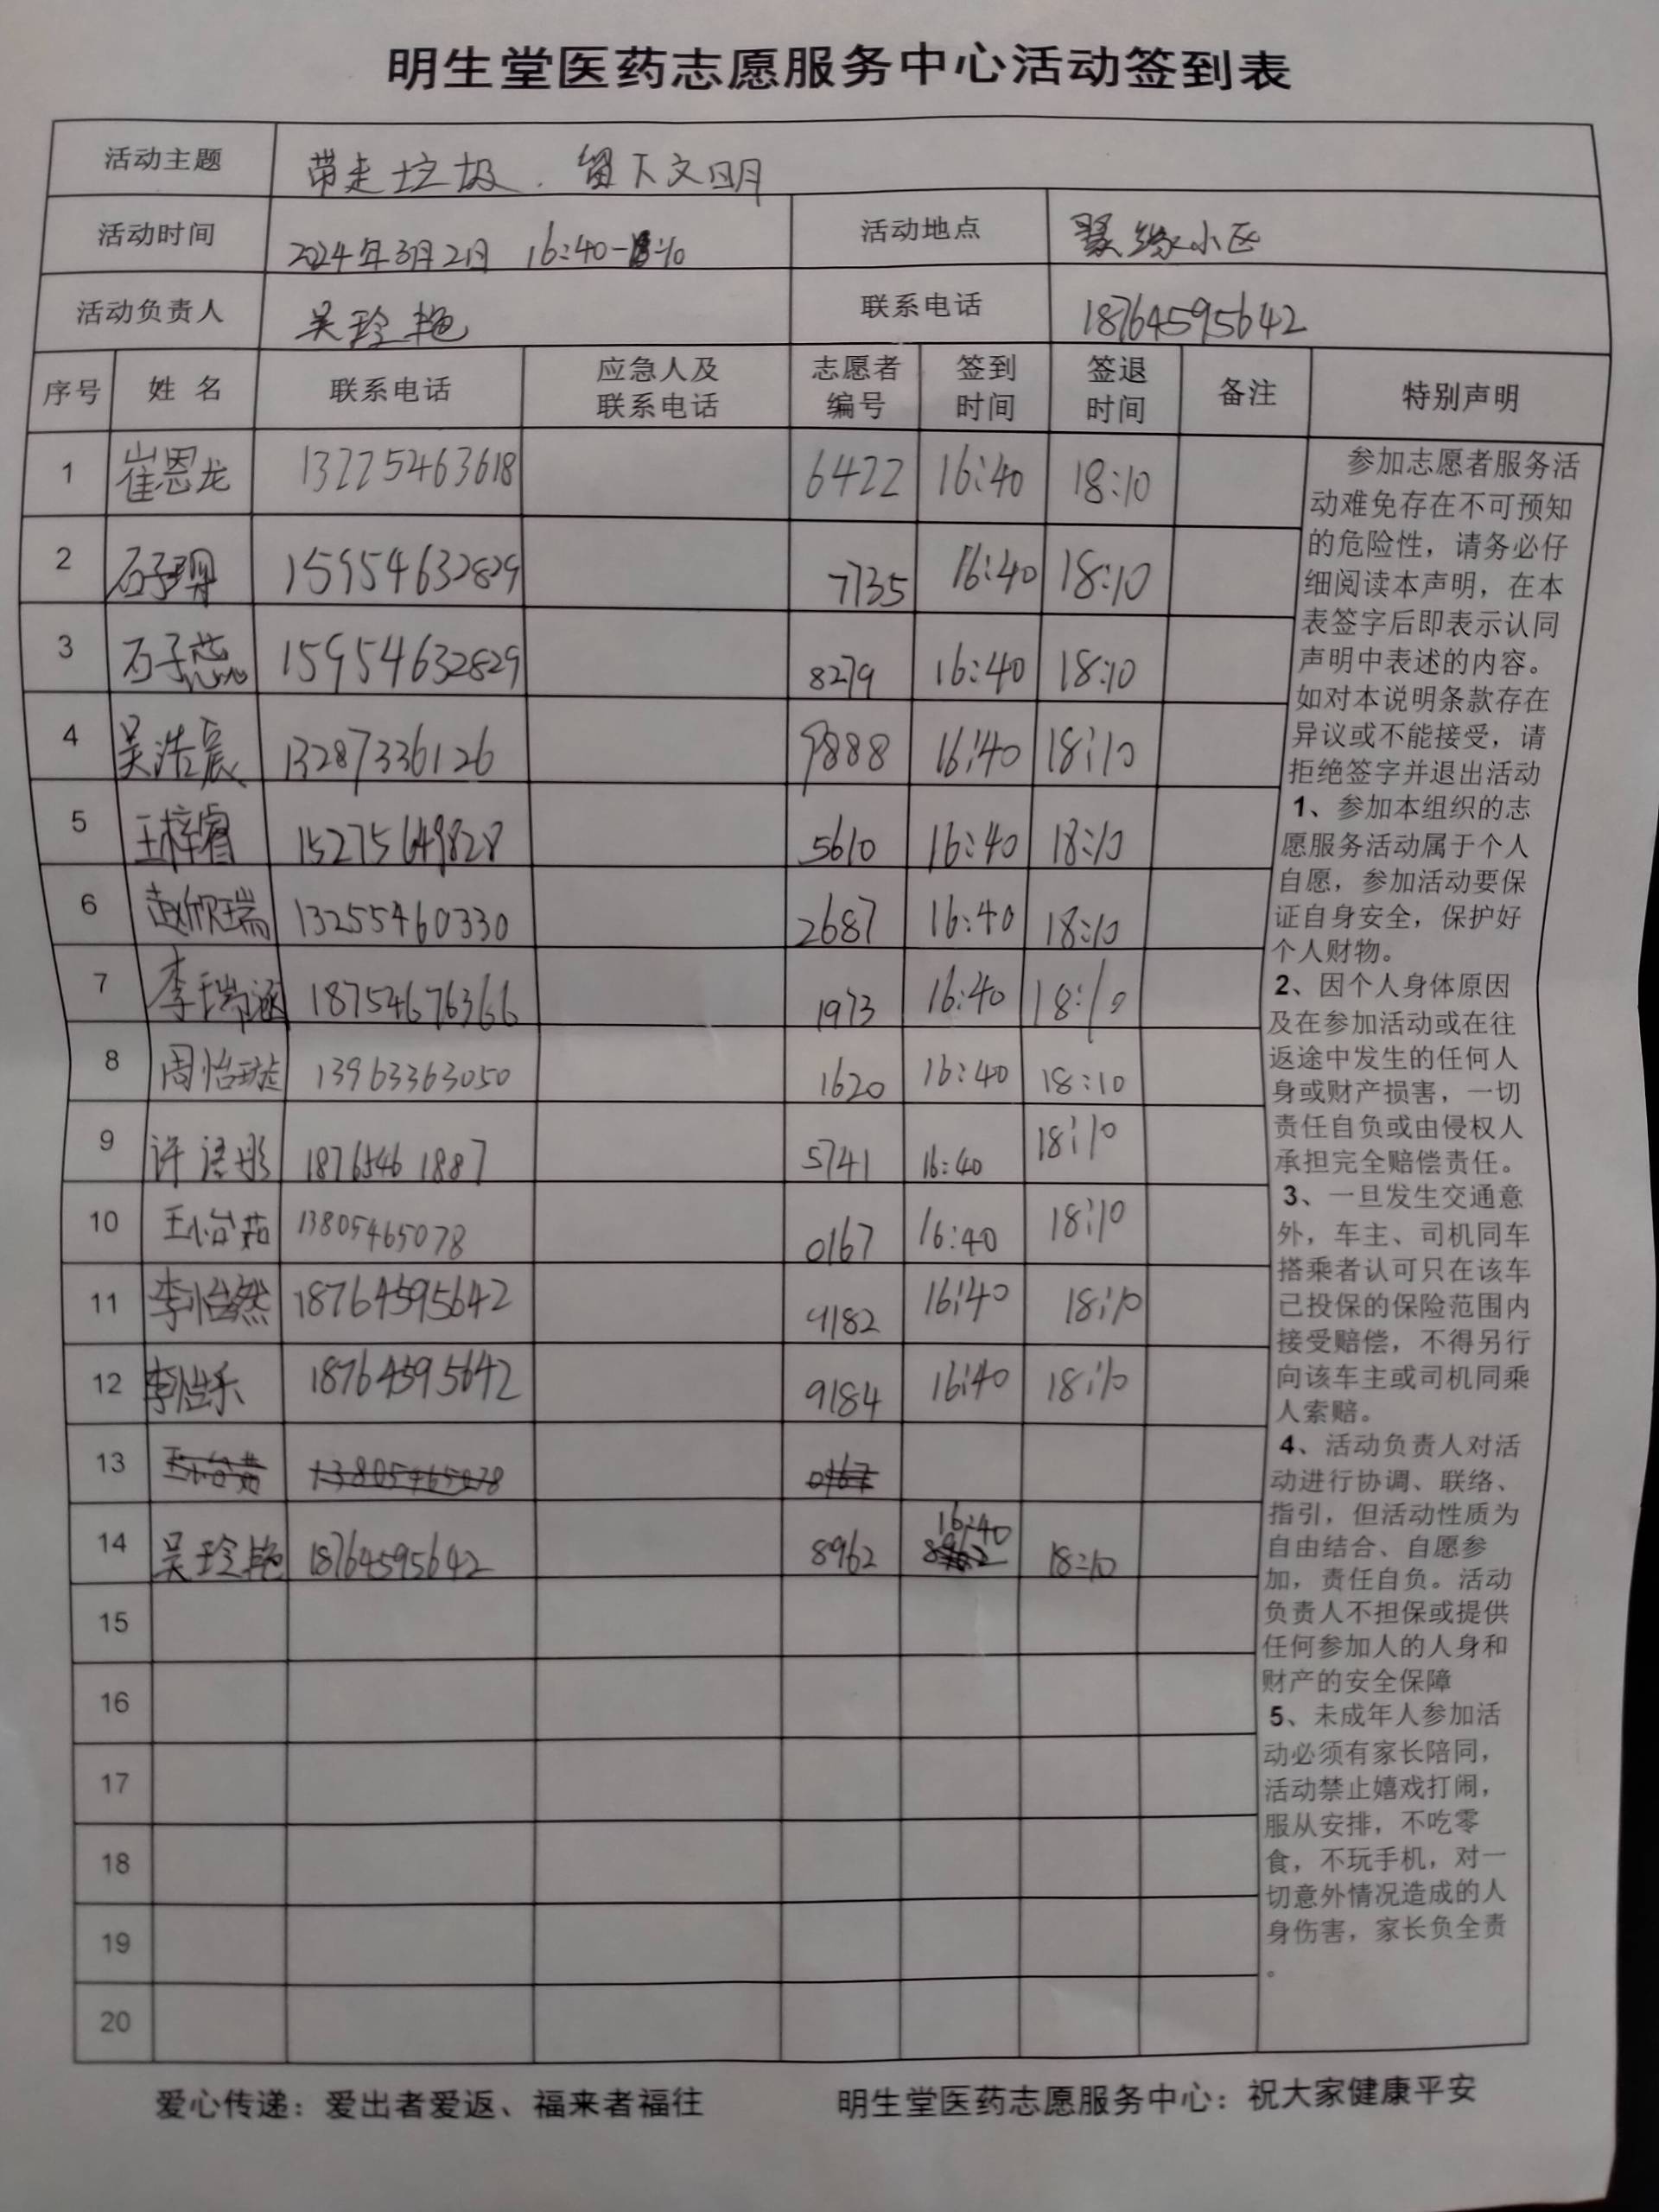 明生堂医药志愿服务中心活动签到表
活动主题 带走垃圾．留下文明
活动时间 2024年3月2日 16:40-18:10 活动地点 小区
活动负责人 吴玲艳 联系电话 18764595642
序号 姓名 联系电话 应急人及联系电话 志愿者编号 签到时间 签退时间 备注 特别声明
1 崔恩龙 13225463618 6422 16:40 18:10
2 石子玥 15954632829 7735 16:40 18:10
3 石子蕊 15954632829 8279 16:40 18:10
4 吴浩宸 13287336126 9888 16:40 18:10
5 王梓睿 15275649828 5610 16:40 18:10
6 赵欣瑞 13255460330 2687 16:40 18:10
7 李瑞涵 18754676366 1973 16:40 18:10
8 周怡璇 13963363050 1620 16:40 18:10
9 许语彤 18765461887 5741 16:40 18:10
10 王小台茹 13805465078 0167 16:40 18:10
11 李怡然 18764595642 9182 16:40 18:10
12 李怡乐 18764595642 9184 16:40 18:10
13 13805465078 0167
14 吴玲艳 18764595642 8962 16:40 18:10
15
16
17
18
19
20
参加志愿者服务活
动难免存在不可预知
的危险性，请务必仔
细阅读本声明，在本
表签字后即表示认同
声明中表述的内容。
如对本说明条款存在
异议或不能接受，请
拒绝签字并退出活动
1、参加本组织的志
愿服务活动属于个人
自愿，参加活动要保
证自身安全，保护好
个人财物。
2、因个人身体原因
及在参加活动或在往
返途中发生的任何人
身或财产损害，一切
责任自负或由侵权人
承担完全赔偿责任。
3、一旦发生交通意
外，车主、司机同车
搭乘者认可只在该车
已投保的保险范围内
接受赔偿，不得另行
向该车主或司机同乘
人索赔。
4、活动负责人对活
动进行协调、联络、
指引，但活动性质为
自由结合、自愿参
加，责任自负。活动
负责人不担保或提供
任何参加人的人身和
财产的安全保障
5、未成年人参加活
动必须有家长陪同，
活动禁止嬉戏打闹，
服从安排，不吃零
食，不玩手机，对一
切意外情况造成的人
身伤害，家长负全责
。
爱心传递：爱出者爱返、福来者福往 明生堂医药志愿服务中心：祝大家健康平安